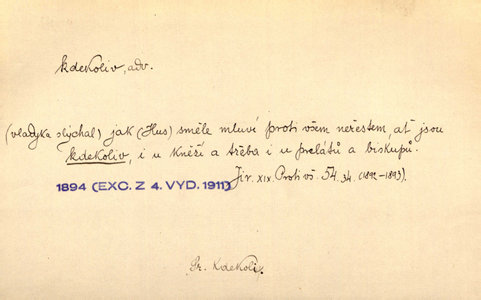 kdekoliv, adv.
(vladyka slýchal) jak (Hus) směle mluví proti všem neřestem, ať jsou
kdekoliv, i u kněží a třeba i u prelátů a biskupů.
Jir. XIX. Proti vš. 54. 34. (1892–1893).
1894 (EXC. Z 4. VYD. 1911)
Sr. Kdekoli.